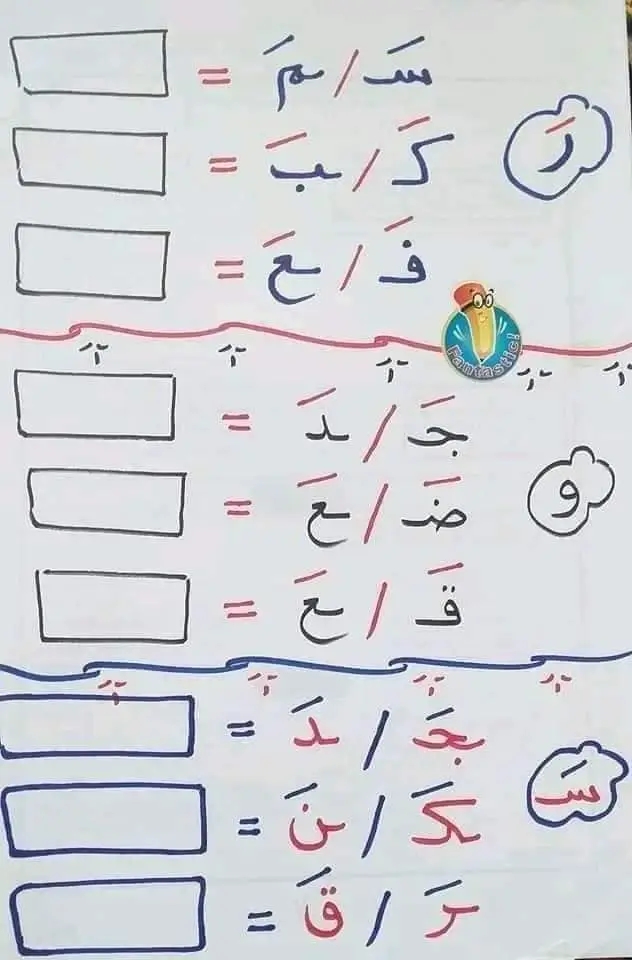 سَ / مَ =
رَ
كَ / بَ =
فَ / عَ =
Fantastic!
جَ / دَ =
و
ضَ / عَ =
قَ / عَ =
جَ / دَ =
سَ
كَ / نَ =
رَ / قَ =